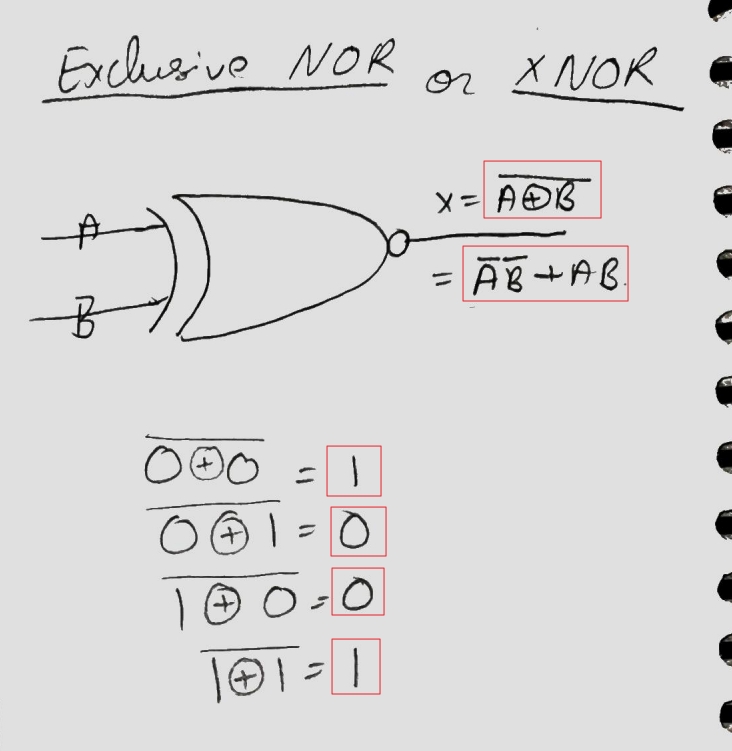 Exclusive NOR or XNOR
A
B
x = \overline{A⊕B}
= \overline{A}\overline{B} + AB.
\overline{0⊕0} = 1
\overline{0⊕1} = 0
\overline{1⊕0} = 0
\overline{1⊕1} = 1